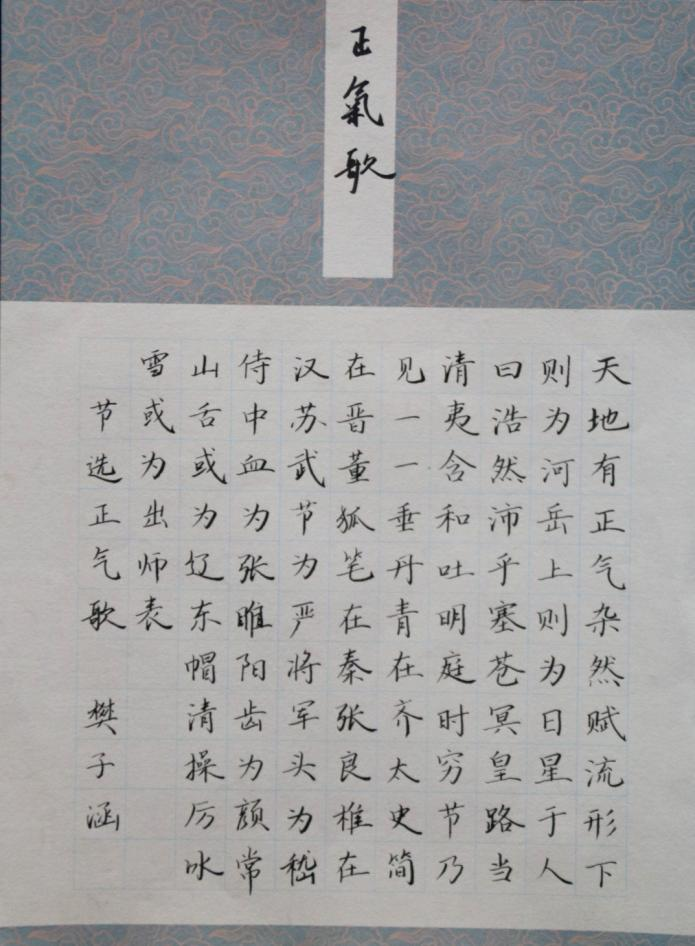 正氣歌
天地有正气杂然赋流形下
则为河岳上则为日星于人
曰浩然沛乎塞苍冥皇路当
清夷含和吐明庭时穷节乃
见一一垂丹青在齐太史简
在晋董狐笔在秦张良椎在
汉苏武节为严将军头为嵇
侍中血为张睢阳齿为颜常
山舌或为辽东帽清操厉冰
雪或为出师表
节选正气歌 樊子涵